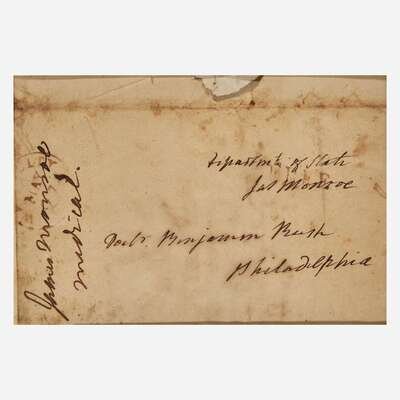 Department of State
Jas Monroe
Doctr. Benjamin Rush
Philadelphia
James Monroe
medical.